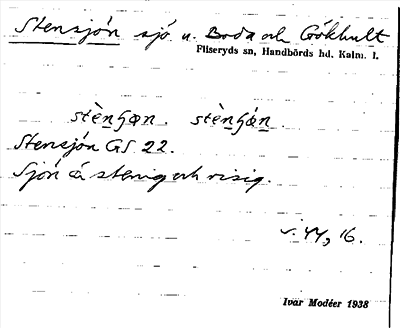 Stensjön sjö u. Boda och Gökhult
Fliseryds sn, Handbörds hd. Kalm. l.
stènʃɷn. stènʃǿn.
Stensjön GS 22.
Sjön är stenig och risig.
44, 16.
Ivar Modéer 1938